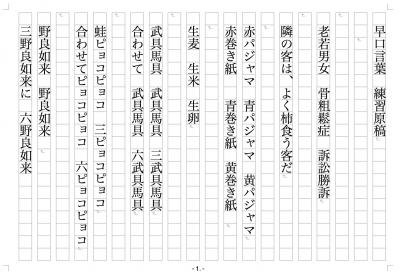 早口言葉　練習原稿
老若男女　骨粗鬆症　訴訟勝訴
隣の客は、よく柿食う客だ
赤パジャマ　青パジャマ　黄パジャマ
赤巻き紙　青巻き紙　黄巻き紙
生麦　生米　生卵
武具馬具　武具馬具　三武具馬具
合わせて　武具馬具　六武具馬具
蛙ピョコピョコ　三ピョコピョコ
合わせてピョコピョコ　六ピョコピョコ
野良如来　野良如来
三野良如来に　六野良如来
- 1. -